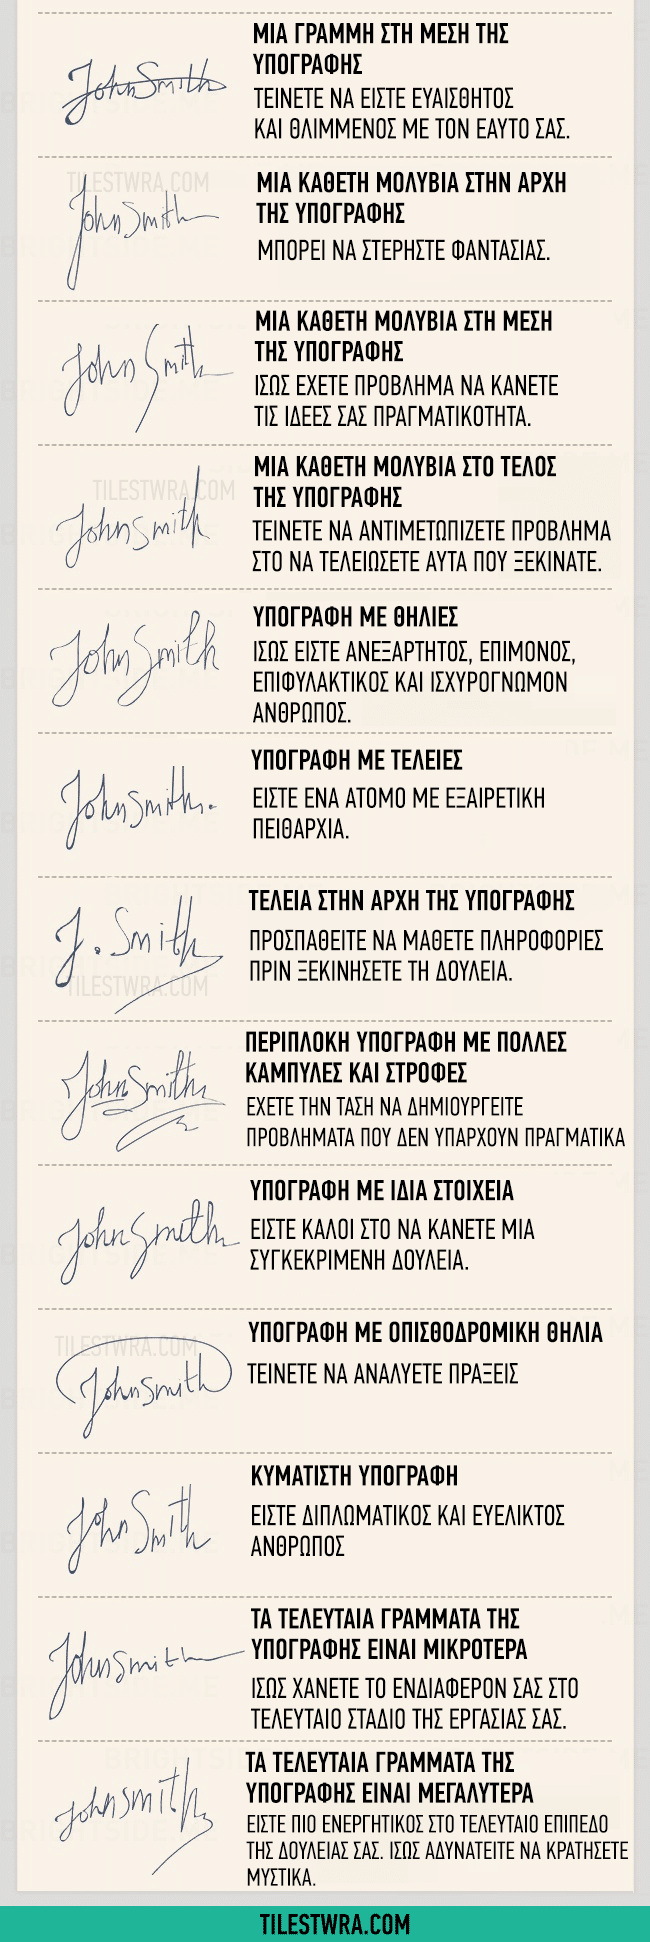 ΜΙΑ ΓΡΑΜΜΗ ΣΤΗ ΜΕΣΗ ΤΗΣ
ΥΠΟΓΡΑΦΗΣ
John Smith
ΤΕΙΝΕΤΕ ΝΑ ΕΙΣΤΕ ΕΥΑΙΣΘΗΤΟΣ
ΚΑΙ ΘΛΙΜΜΕΝΟΣ ΜΕ ΤΟΝ ΕΑΥΤΟ ΣΑΣ.
TILESTWRA.COM
ΜΙΑ ΚΑΘΕΤΗ ΜΟΛΥΒΙΑ ΣΤΗΝ ΑΡΧΗ
ΤΗΣ ΥΠΟΓΡΑΦΗΣ
John Smith
ΜΠΟΡΕΙ ΝΑ ΣΤΕΡΗΣΤΕ ΦΑΝΤΑΣΙΑΣ.
ΜΙΑ ΚΑΘΕΤΗ ΜΟΛΥΒΙΑ ΣΤΗ ΜΕΣΗ
ΤΗΣ ΥΠΟΓΡΑΦΗΣ
John Smith
ΙΣΩΣ ΕΧΕΤΕ ΠΡΟΒΛΗΜΑ ΝΑ ΚΑΝΕΤΕ
ΤΙΣ ΙΔΕΕΣ ΣΑΣ ΠΡΑΓΜΑΤΙΚΟΤΗΤΑ.
ΜΙΑ ΚΑΘΕΤΗ ΜΟΛΥΒΙΑ ΣΤΟ ΤΕΛΟΣ
TILESTWRA.COM
ΤΗΣ ΥΠΟΓΡΑΦΗΣ
John smith
ΤΕΙΝΕΤΕ ΝΑ ΑΝΤΙΜΕΤΩΠΙΖΕΤΕ ΠΡΟΒΛΗΜΑ
ΣΤΟ ΝΑ ΤΕΛΕΙΩΣΕΤΕ ΑΥΤΑ ΠΟΥ ΞΕΚΙΝΑΤΕ.
ΥΠΟΓΡΑΦΗ ΜΕ ΘΗΛΙΕΣ
John Smith
ΙΣΩΣ ΕΙΣΤΕ ΑΝΕΞΑΡΤΗΤΟΣ, ΕΠΙΜΟΝΟΣ,
ΕΠΙΦΥΛΑΚΤΙΚΟΣ ΚΑΙ ΙΣΧΥΡΟΓΝΩΜΟΝ
ΑΝΘΡΩΠΟΣ.
ΥΠΟΓΡΑΦΗ ΜΕ ΤΕΛΕΙΕΣ
John Smith.
ΕΙΣΤΕ ΕΝΑ ΑΤΟΜΟ ΜΕ ΕΞΑΙΡΕΤΙΚΗ
ΠΕΙΘΑΡΧΙΑ.
ΤΕΛΕΙΑ ΣΤΗΝ ΑΡΧΗ ΤΗΣ ΥΠΟΓΡΑΦΗΣ
J. Smith
ΠΡΟΣΠΑΘΕΙΤΕ ΝΑ ΜΑΘΕΤΕ ΠΛΗΡΟΦΟΡΙΕΣ
ΠΡΙΝ ΞΕΚΙΝΗΣΕΤΕ ΤΗ ΔΟΥΛΕΙΑ.
TILESTWRA.COM
ΠΕΡΙΠΛΟΚΗ ΥΠΟΓΡΑΦΗ ΜΕ ΠΟΛΛΕΣ
ΚΑΜΠΥΛΕΣ ΚΑΙ ΣΤΡΟΦΕΣ
John Smith
ΕΧΕΤΕ ΤΗΝ ΤΑΣΗ ΝΑ ΔΗΜΙΟΥΡΓΕΙΤΕ
ΠΡΟΒΛΗΜΑΤΑ ΠΟΥ ΔΕΝ ΥΠΑΡΧΟΥΝ ΠΡΑΓΜΑΤΙΚΑ
ΥΠΟΓΡΑΦΗ ΜΕ ΙΔΙΑ ΣΤΟΙΧΕΙΑ
John Smith
ΕΙΣΤΕ ΚΑΛΟΙ ΣΤΟ ΝΑ ΚΑΝΕΤΕ ΜΙΑ
ΣΥΓΚΕΚΡΙΜΕΝΗ ΔΟΥΛΕΙΑ.
ΥΠΟΓΡΑΦΗ ΜΕ ΟΠΙΣΘΟΔΡΟΜΙΚΗ ΘΗΛΙΑ
TILESTWRA.COM
John smith
ΤΕΙΝΕΤΕ ΝΑ ΑΝΑΛΥΕΤΕ ΠΡΑΞΕΙΣ
ΚΥΜΑΤΙΣΤΗ ΥΠΟΓΡΑΦΗ
John Smith
ΕΙΣΤΕ ΔΙΠΛΩΜΑΤΙΚΟΣ ΚΑΙ ΕΥΕΛΙΚΤΟΣ
ΑΝΘΡΩΠΟΣ
ΤΑ ΤΕΛΕΥΤΑΙΑ ΓΡΑΜΜΑΤΑ ΤΗΣ
ΥΠΟΓΡΑΦΗΣ ΕΙΝΑΙ ΜΙΚΡΟΤΕΡΑ
John smith
ΙΣΩΣ ΧΑΝΕΤΕ ΤΟ ΕΝΔΙΑΦΕΡΟΝ ΣΑΣ ΣΤΟ
ΤΕΛΕΥΤΑΙΟ ΣΤΑΔΙΟ ΤΗΣ ΕΡΓΑΣΙΑΣ ΣΑΣ.
ΤΑ ΤΕΛΕΥΤΑΙΑ ΓΡΑΜΜΑΤΑ ΤΗΣ
ΥΠΟΓΡΑΦΗΣ ΕΙΝΑΙ ΜΕΓΑΛΥΤΕΡΑ
john smith
ΕΙΣΤΕ ΠΙΟ ΕΝΕΡΓΗΤΙΚΟΣ ΣΤΟ ΤΕΛΕΥΤΑΙΟ ΕΠΙΠΕΔΟ
ΤΗΣ ΔΟΥΛΕΙΑΣ ΣΑΣ. ΙΣΩΣ ΑΔΥΝΑΤΕΙΤΕ ΝΑ ΚΡΑΤΗΣΕΤΕ
ΜΥΣΤΙΚΑ.
TILESTWRA.COM